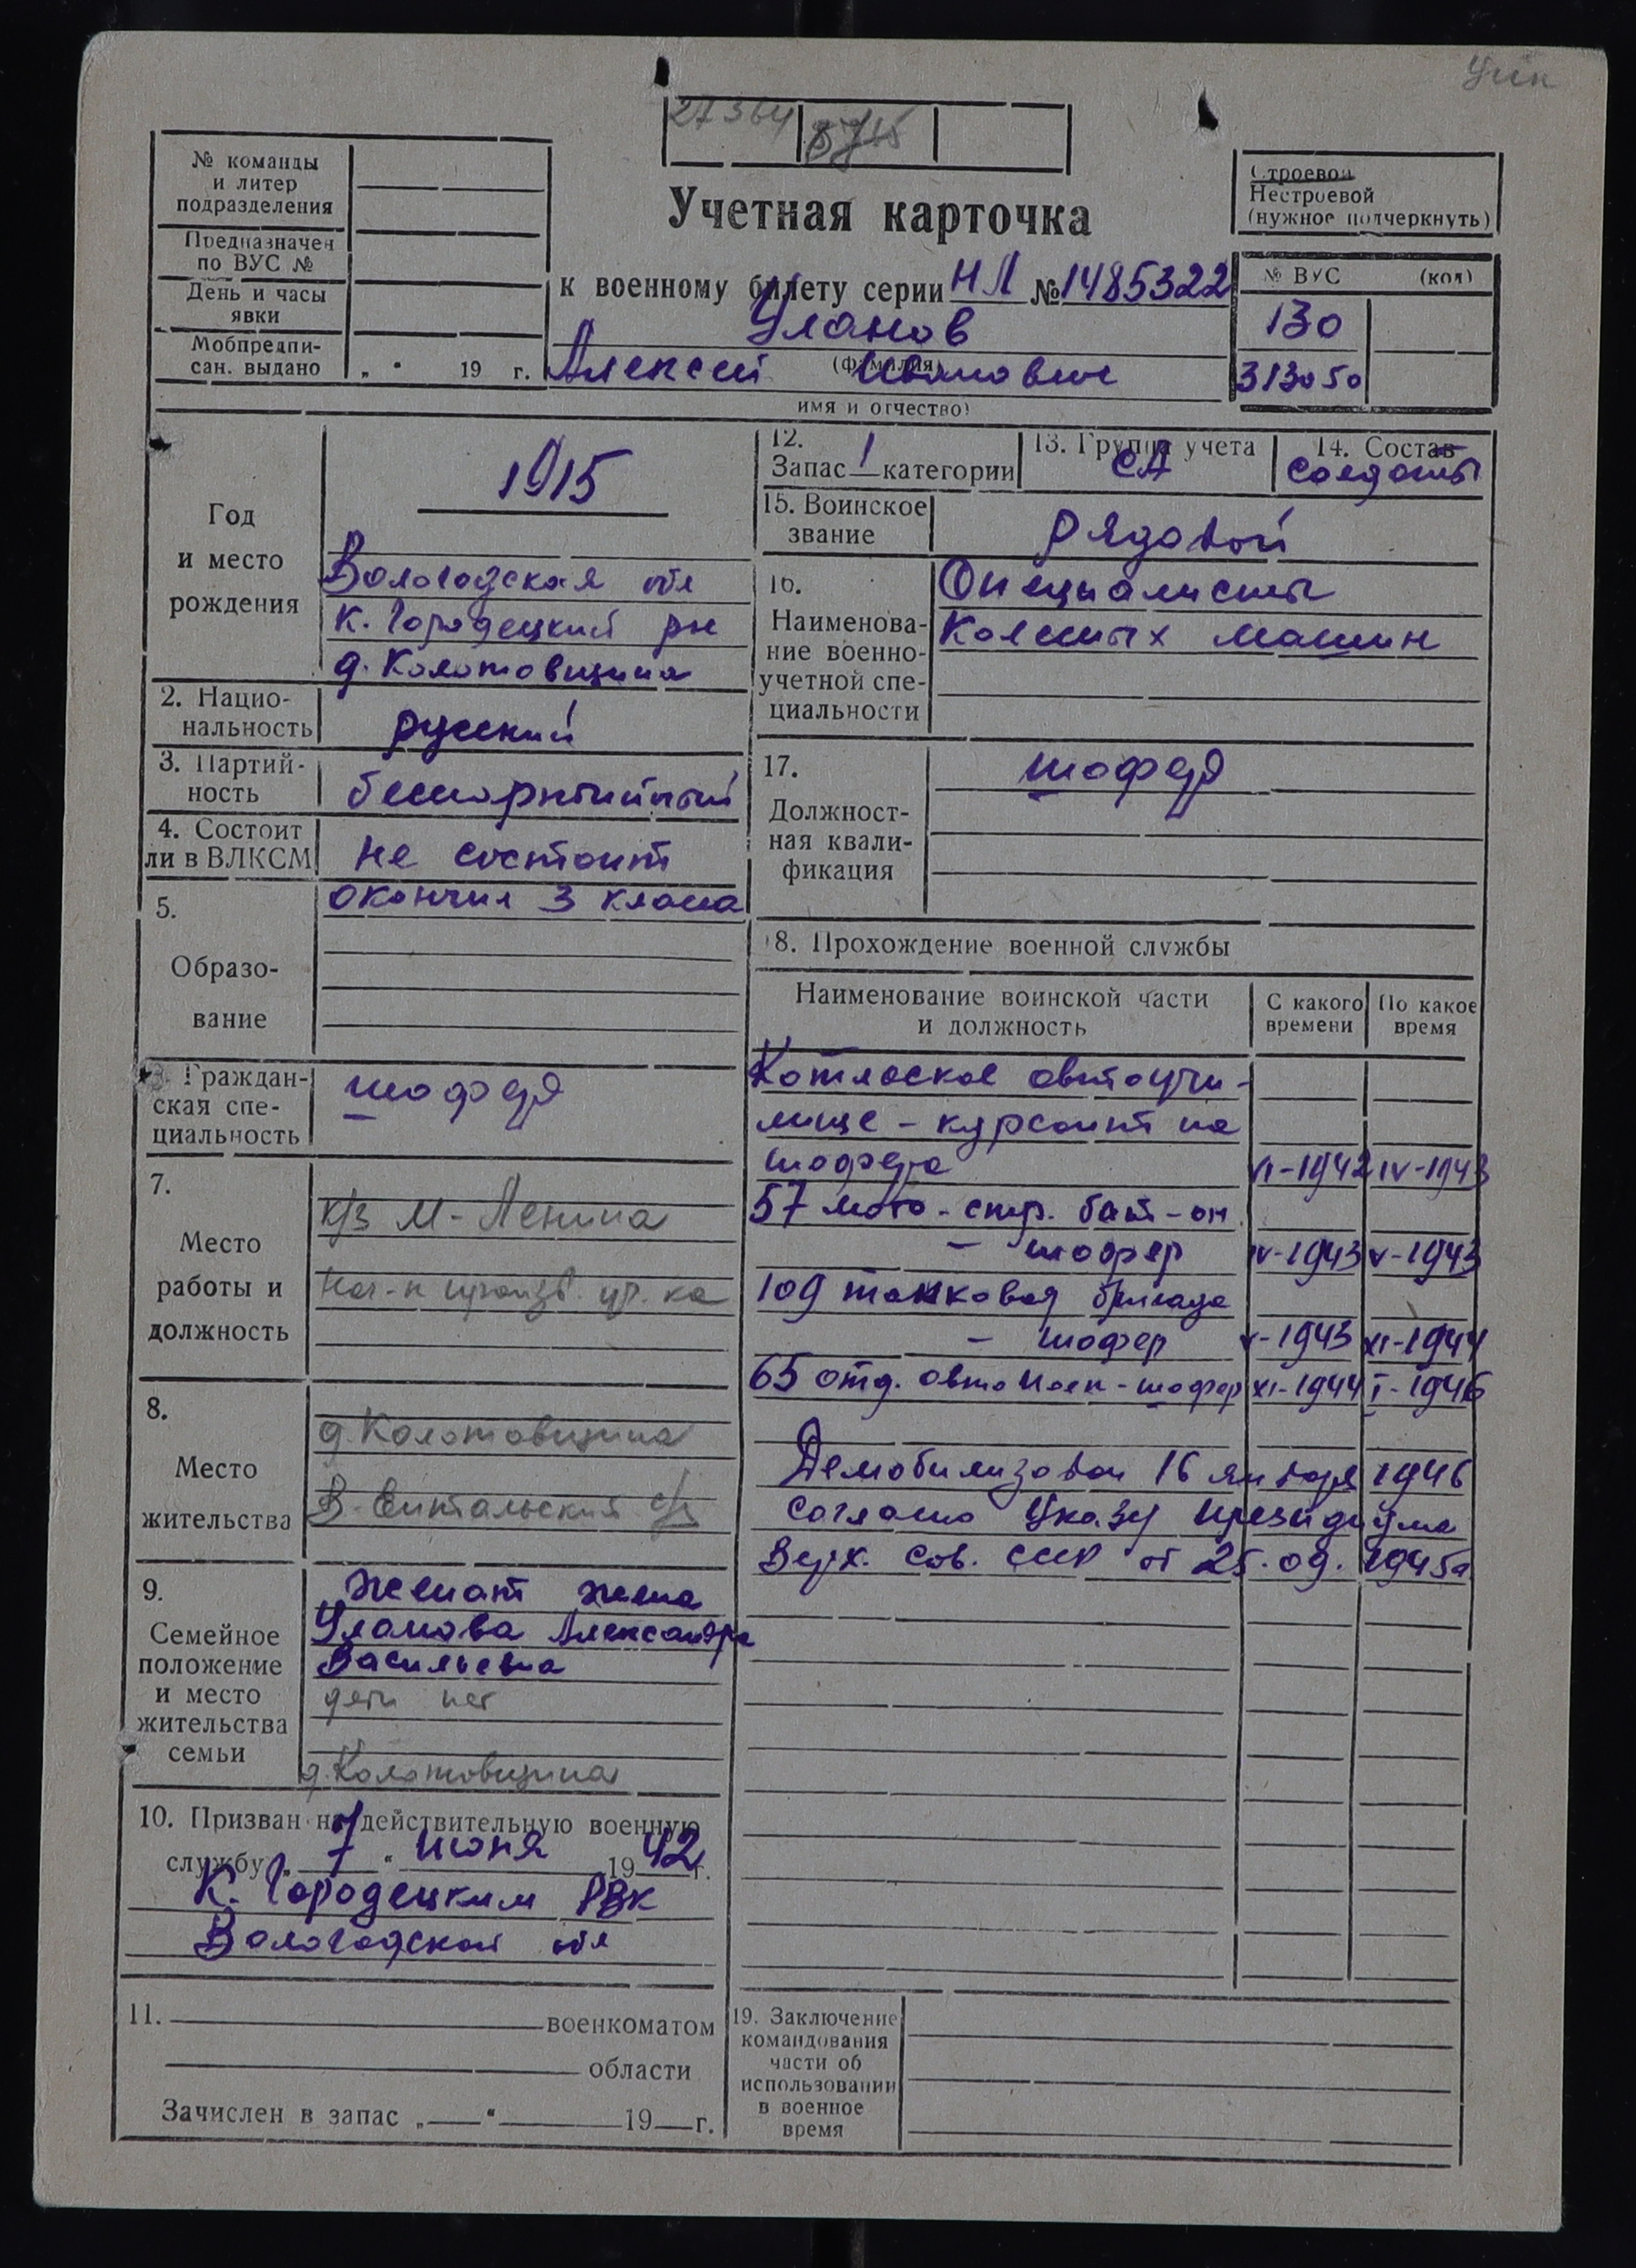 27364
№ команды
и литер
подразделения
Предназначен
по ВУС №
День и часы
явки
Мобпредпи-
сан. выдано „ “ 19 г.
Учетная карточка
к военному билету серии НЛ № 1485322
Уланов
(фамилия)
Алексей Иванович
имя и отчество)
Строевой
Нестроевой
(нужное подчеркнуть)
№ ВУС (код)
130
313050
Год
и место
рождения
1915
Вологодская обл
К. Городецкий рн
д. Колотовщина
2. Нацио-
нальность
русский
3. Партий-
ность
беспартийный
4. Состоит
ли в ВЛКСМ
не состоит
5.
Образо-
вание
окончил 3 класса
6. Граждан-
ская спе-
циальность
шофер
7.
Место
работы и
должность
к/з М-Ленина
8.
Место
жительства
д. Колотовщина
9.
Семейное
положение
и место
жительства
семьи
женат жена
Уланова Александра
Васильевна
дети нет
д. Колотовщина
10. Призван на действительную военную
службу „ 7 “ июня 1942 г.
К. Городецким РВК
Вологодской обл
11. военкоматом
области
Зачислен в запас „ “ 19 г.
12.
Запас 1 категории
13. Группа учета
СА
14. Состав
солдаты
15. Воинское
звание
рядовой
16.
Наименова-
ние военно-
учетной спе-
циальности
Специалисты
колесных машин
17.
Должност-
ная квали-
фикация
шофер
18. Прохождение военной службы
Наименование воинской части
и должность
С какого
времени
По какое
время
Котласское автоучи-
лище - курсант на
шофера VI-1942 IV-1943
57 мото-стр. бат-он
- шофер IV-1943 V-1943
109 танковая бригада
- шофер V-1943 XI-1944
65 отд. авто полк - шофер XI-1944 I-1946
Демобилизован 16 января 1946
согласно Указу президиума
Верх. Сов. СССР от 25.09.1945г
19. Заключение
командования
части об
использовании
в военное
время